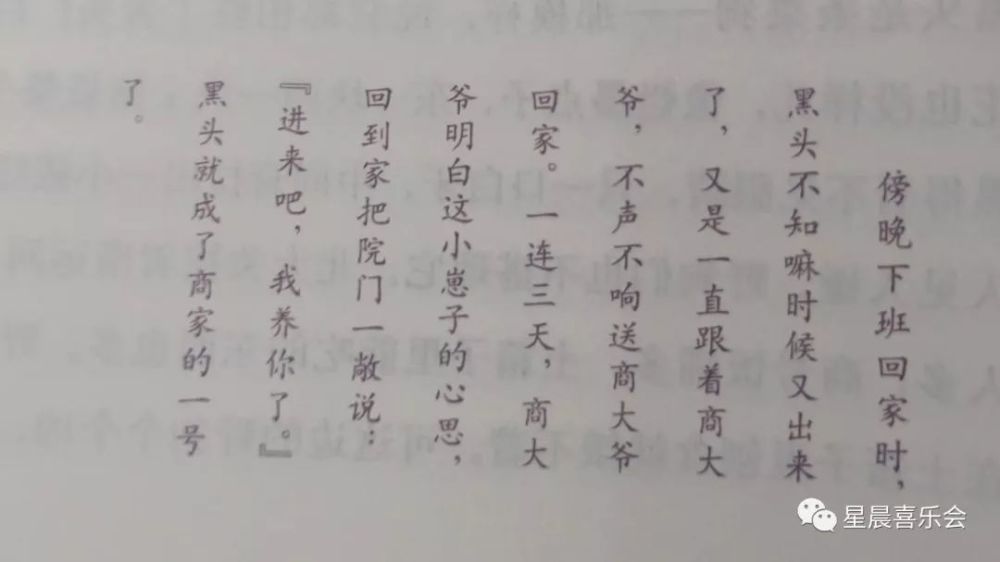 傍晚下班回家时，
黑头不知嘛时候又出来
了，又是一直跟着商大
爷，不声不响送商大爷
回家。一连三天，商大
爷明白这小崽子的心思，
回到家把院门一敞说：
『进来吧，我养你了。』
黑头就成了商家的一号
了。
星晨喜乐会